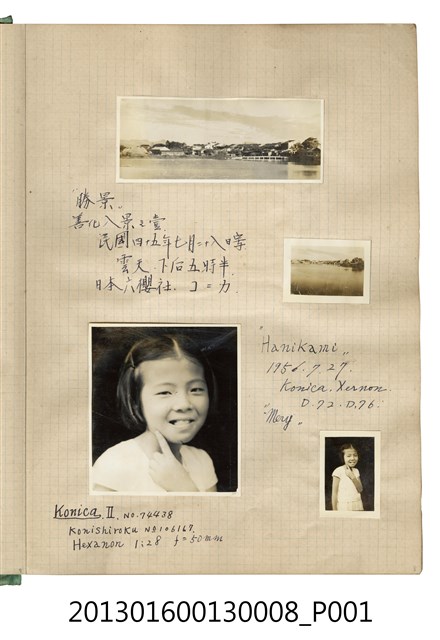 "勝景"
善化八景之壹
民國四十五年七月二十八日寫
雲天 下后五時半
日本六櫻社 コニカ
"Hanikami"
1956.7.27.
Konica. Xernon.
D.72.D.76.
"Mery"
Konica II. NO.74438
Konishiroku NO106167.
Hexanon 1:28 f=50mm
201301600130008_P001